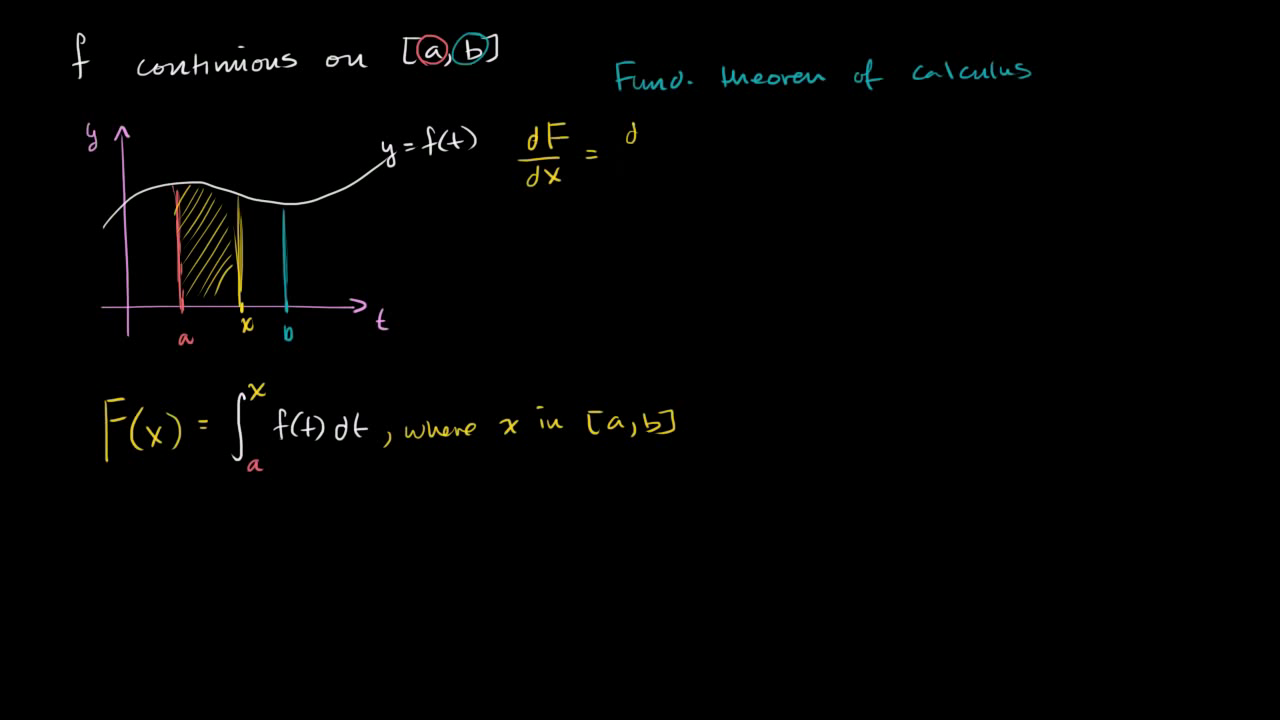 f continuous on [a, b]
Fund. theorem of calculus
y
y = f(t)
dF/dx = d
a
x
b
t
F(x) = ∫ₐˣ f(t) dt , where x in [a, b]